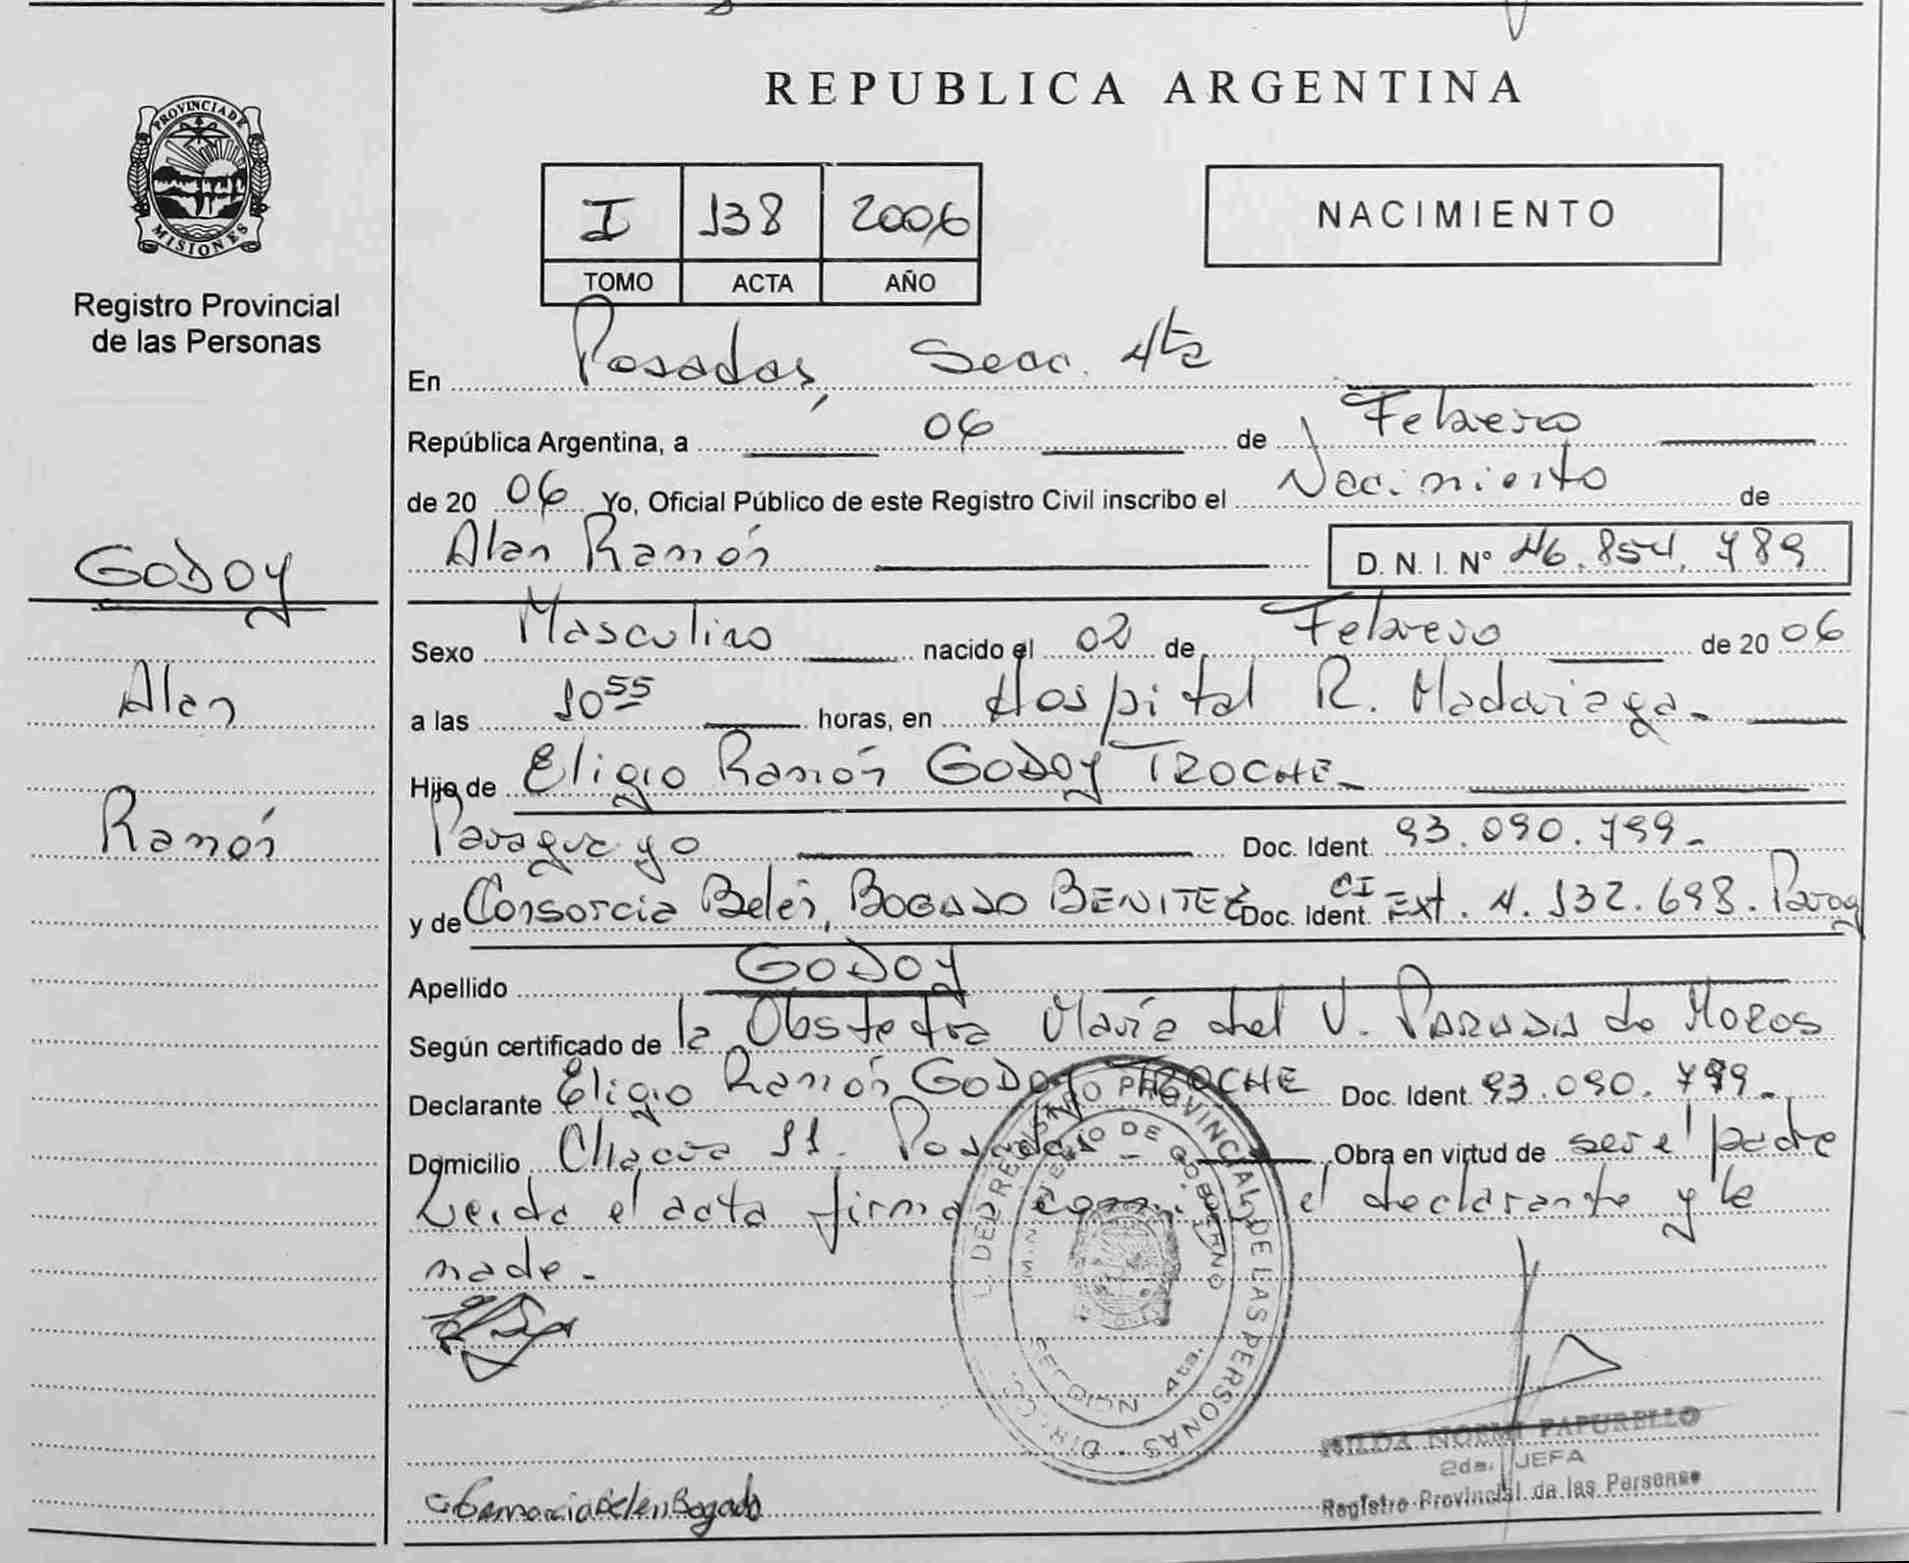 REPUBLICA ARGENTINA
PROVINCIA DE
MISIONES
Registro Provincial
de las Personas
I 138 2006
TOMO ACTA AÑO
NACIMIENTO
En Posadas, Secc. 4ta
República Argentina, a 06 de Febrero
de 20 06 Yo, Oficial Público de este Registro Civil inscribo el Nacimiento de
Alan Ramón D. N. I. Nº 46.854.789
GODOY
Alan
Ramón
Sexo Masculino nacido el 02 de Febrero de 20 06
a las 10 55 horas, en Hospital R. Madariaga
Hijo de Eligio Ramón GODOY TROCHE
Paraguayo Doc. Ident. 93.090.799
y de Consorcia Belén, BOGADO BENITEZ Doc. Ident. CI Ext. 4.132.698. Parag
Apellido GODOY
Según certificado de la Obstetra María del V. PARADA de MOROS
Declarante Eligio Ramón GODOY TROCHE Doc. Ident. 93.090.799
Domicilio Chacra 11. Posadas Obra en virtud de ser el padre
Leida el acta firma el declarante y la
madre
DE LAS PERSONAS
MINISTERIO DE GOBIERNO
SECCION 4ta.
HILDA NOEMI PAPURELLO
2da. JEFA
Registro Provincial de las Personas
Belén Bogado